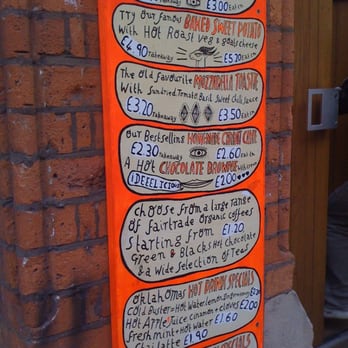 £3.00 Eat in
Try our famous BAKED SWEET POTATO
With Hot Roast veg & goats cheese
£4.90 Takeaway £5.20 Eat in
The old favourite MOZZARELLA TOASTIE
With Sundried Tomato Basil Sweet Chilli Sauce
£3.20 Takeaway £3.50 Eat in
Our Bestselling HOMEMADE CARROT CAKE
£2.30 Takeaway £2.60 Eat in
A Hot CHOCOLATE BROWNIE
IDEEELICIOUS £2.00
Choose from a large range
of fairtrade organic coffees
Starting from £1.20
Green & Blacks Hot Chocolate
& a Wide Selection of Teas
Oklahomas HOT DRINK SPECIALS
Cold Buster = Hot Water lemon Ginger £2.00
Hot Apple Juice cinamon + cloves
Fresh mint + Hot Water £1.60
Chai latte £1.90
SPECIALS